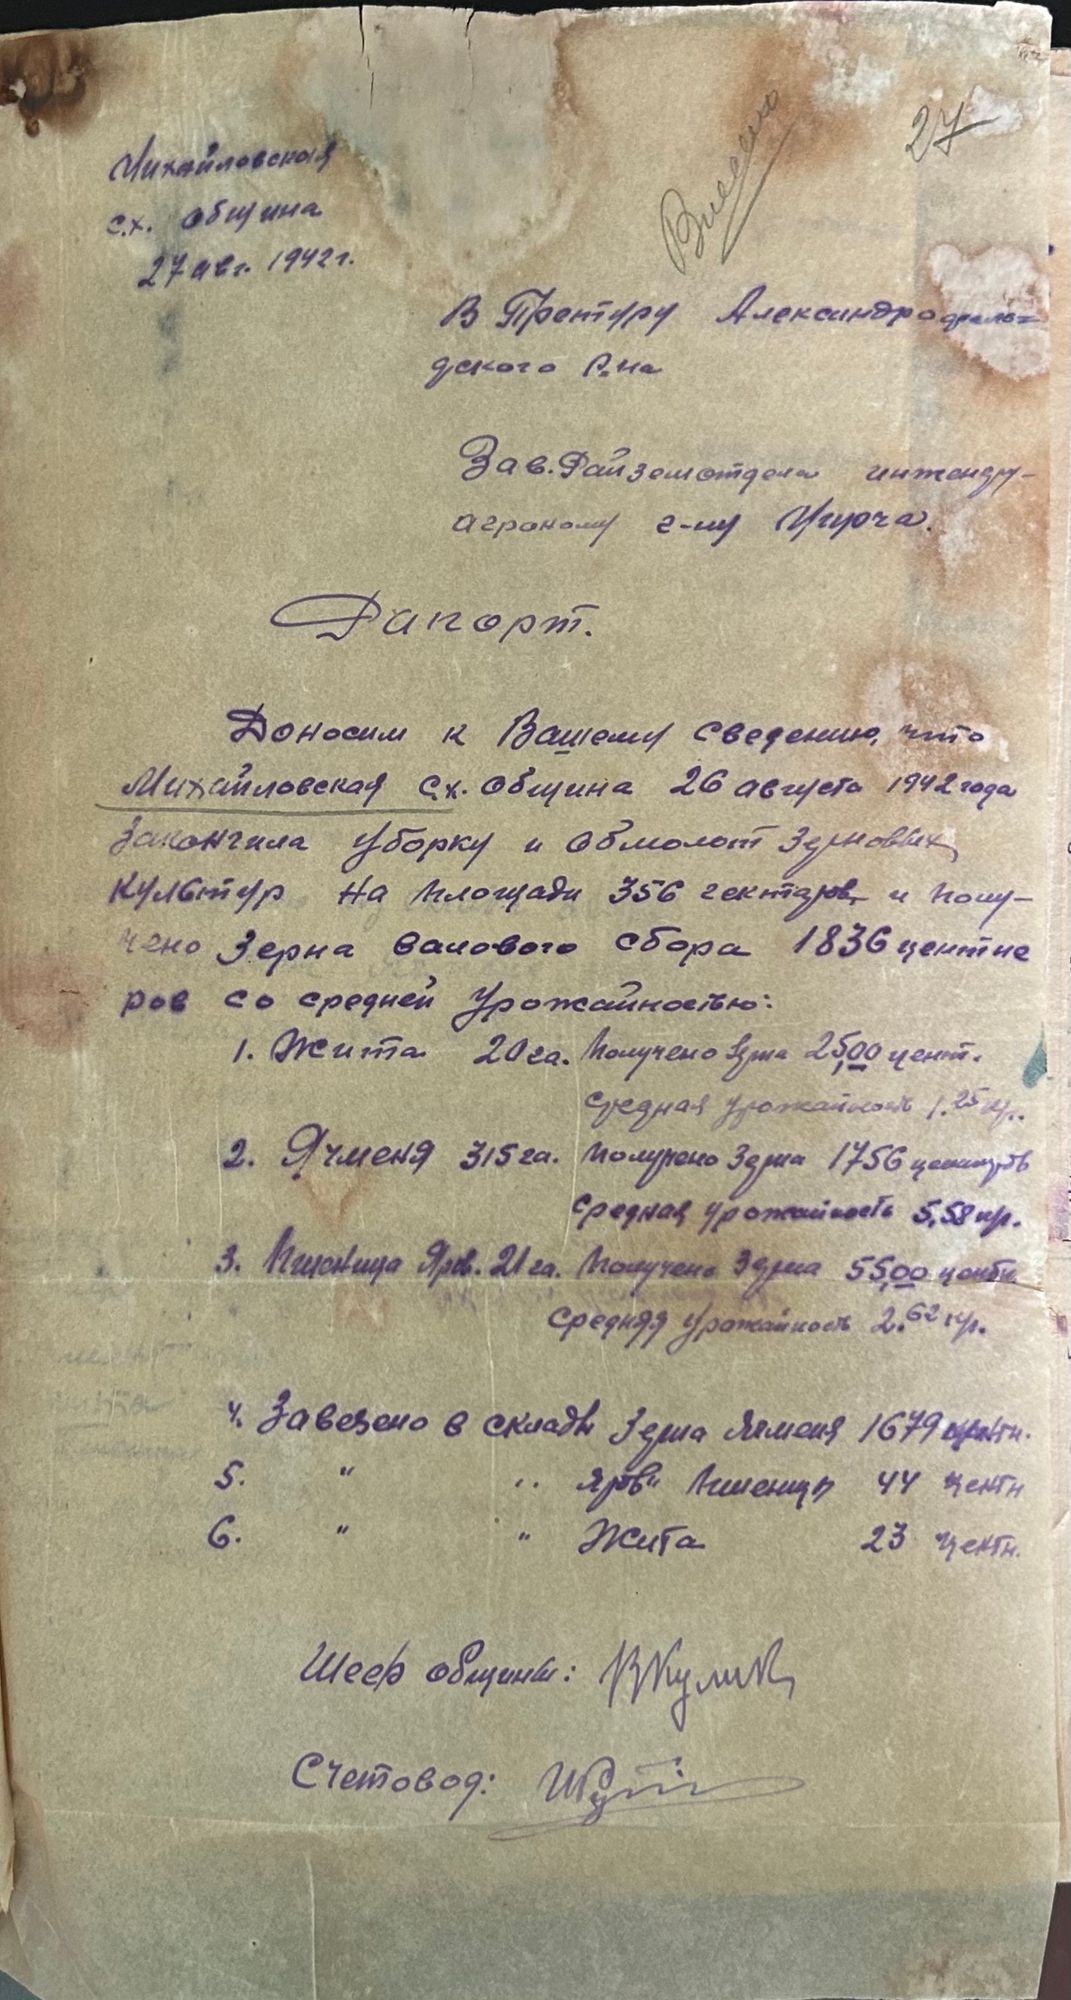 27
Внесено
Михайловская
с.х. община
27 авг. 1942 г.
В Претуру Александрофель-
дского Р.на
Зав. Райземотдела инженеру-
агроному г-ну
Рапорт.
Доносим к Вашему сведению, что
Михайловская с.х. община 26 августа 1942 года
закончила уборку и обмолот зерновых
культур на площади 356 гектаров и полу-
чено зерна валового сбора 1836 центне
ров со средней урожайностью:
1. Жита 20 га. Получено зерна 25,00 цент.
средная урожайность 1.25 цр.
2. Ячменя 315 га. Получено зерна 1756 центнров
средная урожайность 5,58 цр.
3. Пшеница Яров. 21 га. Получено зерна 55,00 центн
средняя урожайность 2.62 цр.
4. Завезено в склады зерна ячменя 1679 центн.
5. " " яров" пшеницы 44 центн
6. " " Жита 23 центн.
Шеф общины: ВКулик
Счетовод: